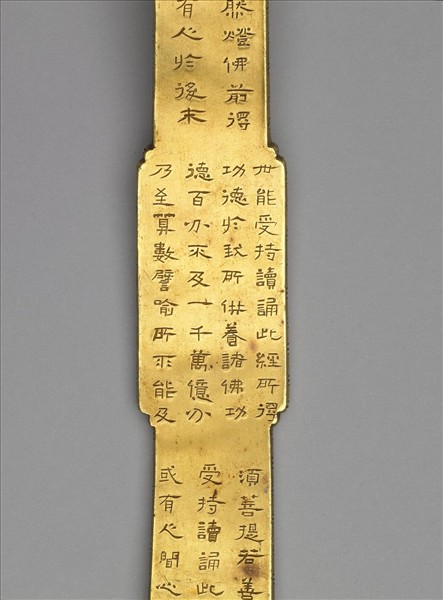 然燈佛前得
有人於後末
世能受持讀誦此經所得
功德於我所供養諸佛功
德百分不及一千萬億分
乃至算數譬喻所不能及
須菩提若善
受持讀誦此
或有人聞心